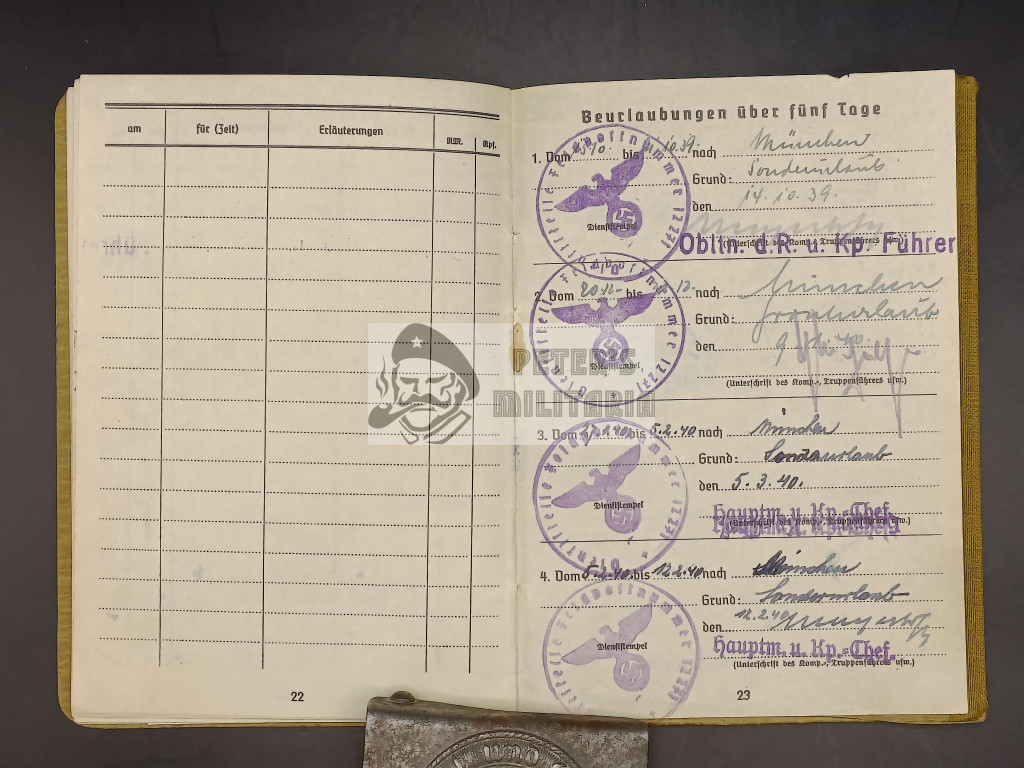 am für (Zeit) Erläuterungen RM. Rpf.
22
Beurlaubungen über fünf Tage
1. Vom bis 10.39. nach München
Grund: Sonderurlaub
den 14.10.39.
Dienststempel
(Unterschrift des Komp.-, Truppenführers usw.)
Obltn. d.R. u. Kp. Führer
Dienststelle Feldpostnummer 12227
2. Vom bis nach München
Grund:
den 9
Dienststempel
(Unterschrift des Komp.-, Truppenführers usw.)
Dienststelle Feldpostnummer 12227
PETER'S
MILITARIA
3. Vom bis 5.2.40 nach München
Grund: Sonderurlaub
den 5.3.40.
Dienststempel
Hauptm. u. Kp.-Chef.
(Unterschrift des Komp.-, Truppenführers usw.)
Dienststelle Feldpostnummer 12227
4. Vom 5.2.40. bis 12.2.40 nach München
Grund: Sonderurlaub
den 12.2.40
Dienststempel
Hauptm. u. Kp.-Chef.
(Unterschrift des Komp.-, Truppenführers usw.)
Dienststelle Feldpostnummer 12227
23